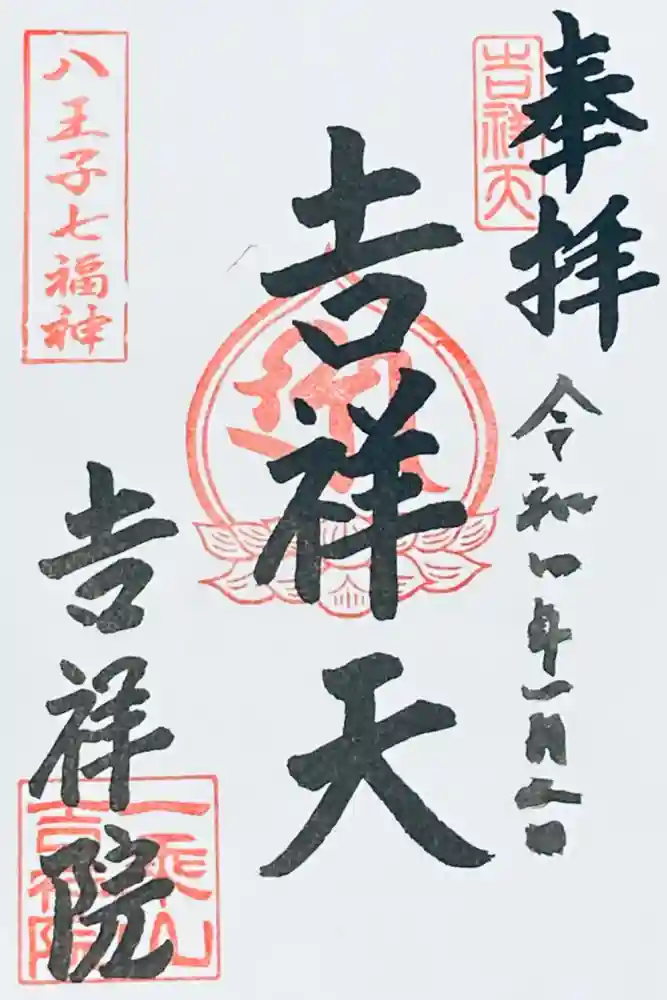 奉拝
令和四年一月五日
吉祥天
吉祥天
八王子七福神
吉祥院
一乗山
吉祥院